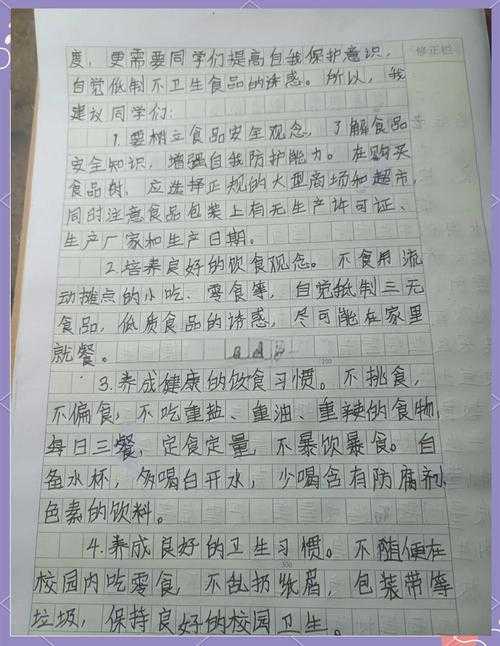 度，更需要同学们提高自我保护意识，
修正栏
自觉低制不卫生食品的诱惑。所以，我
建议同学们：
1.要树立食品安全观念，了解食品
安全知识，增强自我防护能力。在购买
食品时，应选择正规的大型商场和超市，
同时注意食品包装上有无生产许可证、
生产厂家和生产日期。
2.培养良好的饮食观念。不食用流
动摊点的小吃、零食等，自觉抵制三无
食品，低质食品的诱惑，尽可能在家里
就餐。
200
3.养成健康的饮食习惯。不挑食，
不偏食，不吃重盐、重油、重辣的食物，
每日三餐，定食定量，不暴饮暴食。自
备水杯，多喝白开水，少喝含有防腐剂
色素的饮料。
4.养成良好的卫生习惯。不随便在
300
校园内吃零食，不乱扔纸屑，包装带等
垃圾，保持良好的校园卫生。